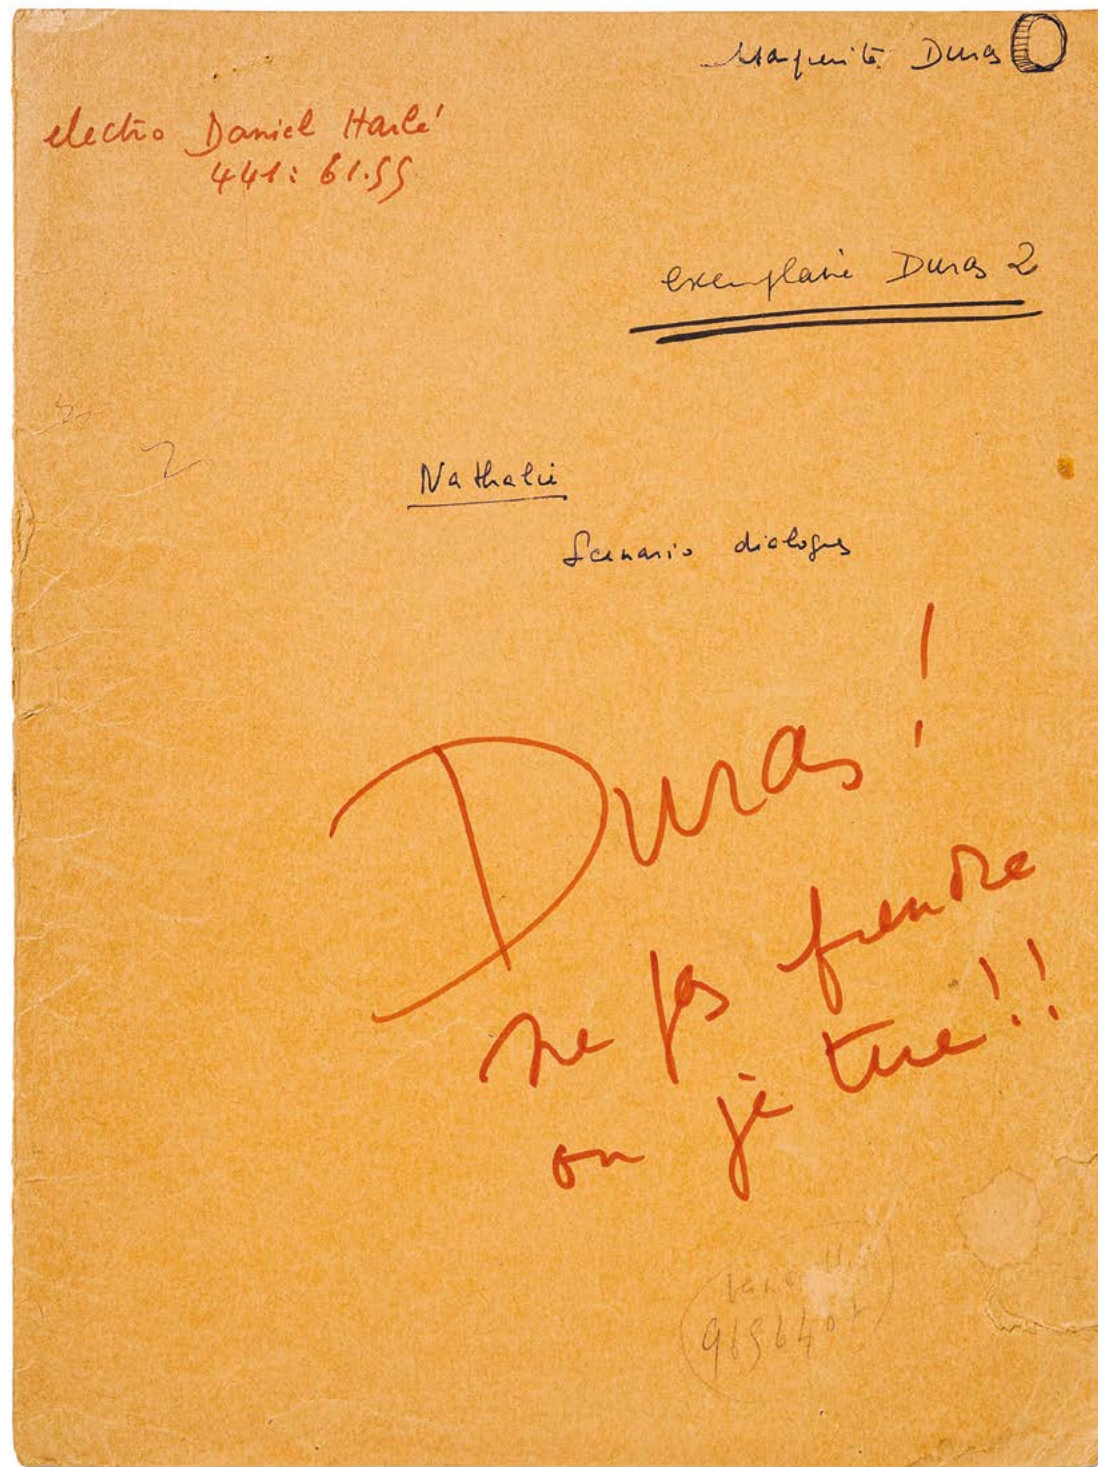 Marguerite Duras
electro Daniel Harlé
441: 61.55
exemplaire Duras 2
2
Nathalie
Scenario dialogues
Duras !
ne pas prendre
ou je tue !!